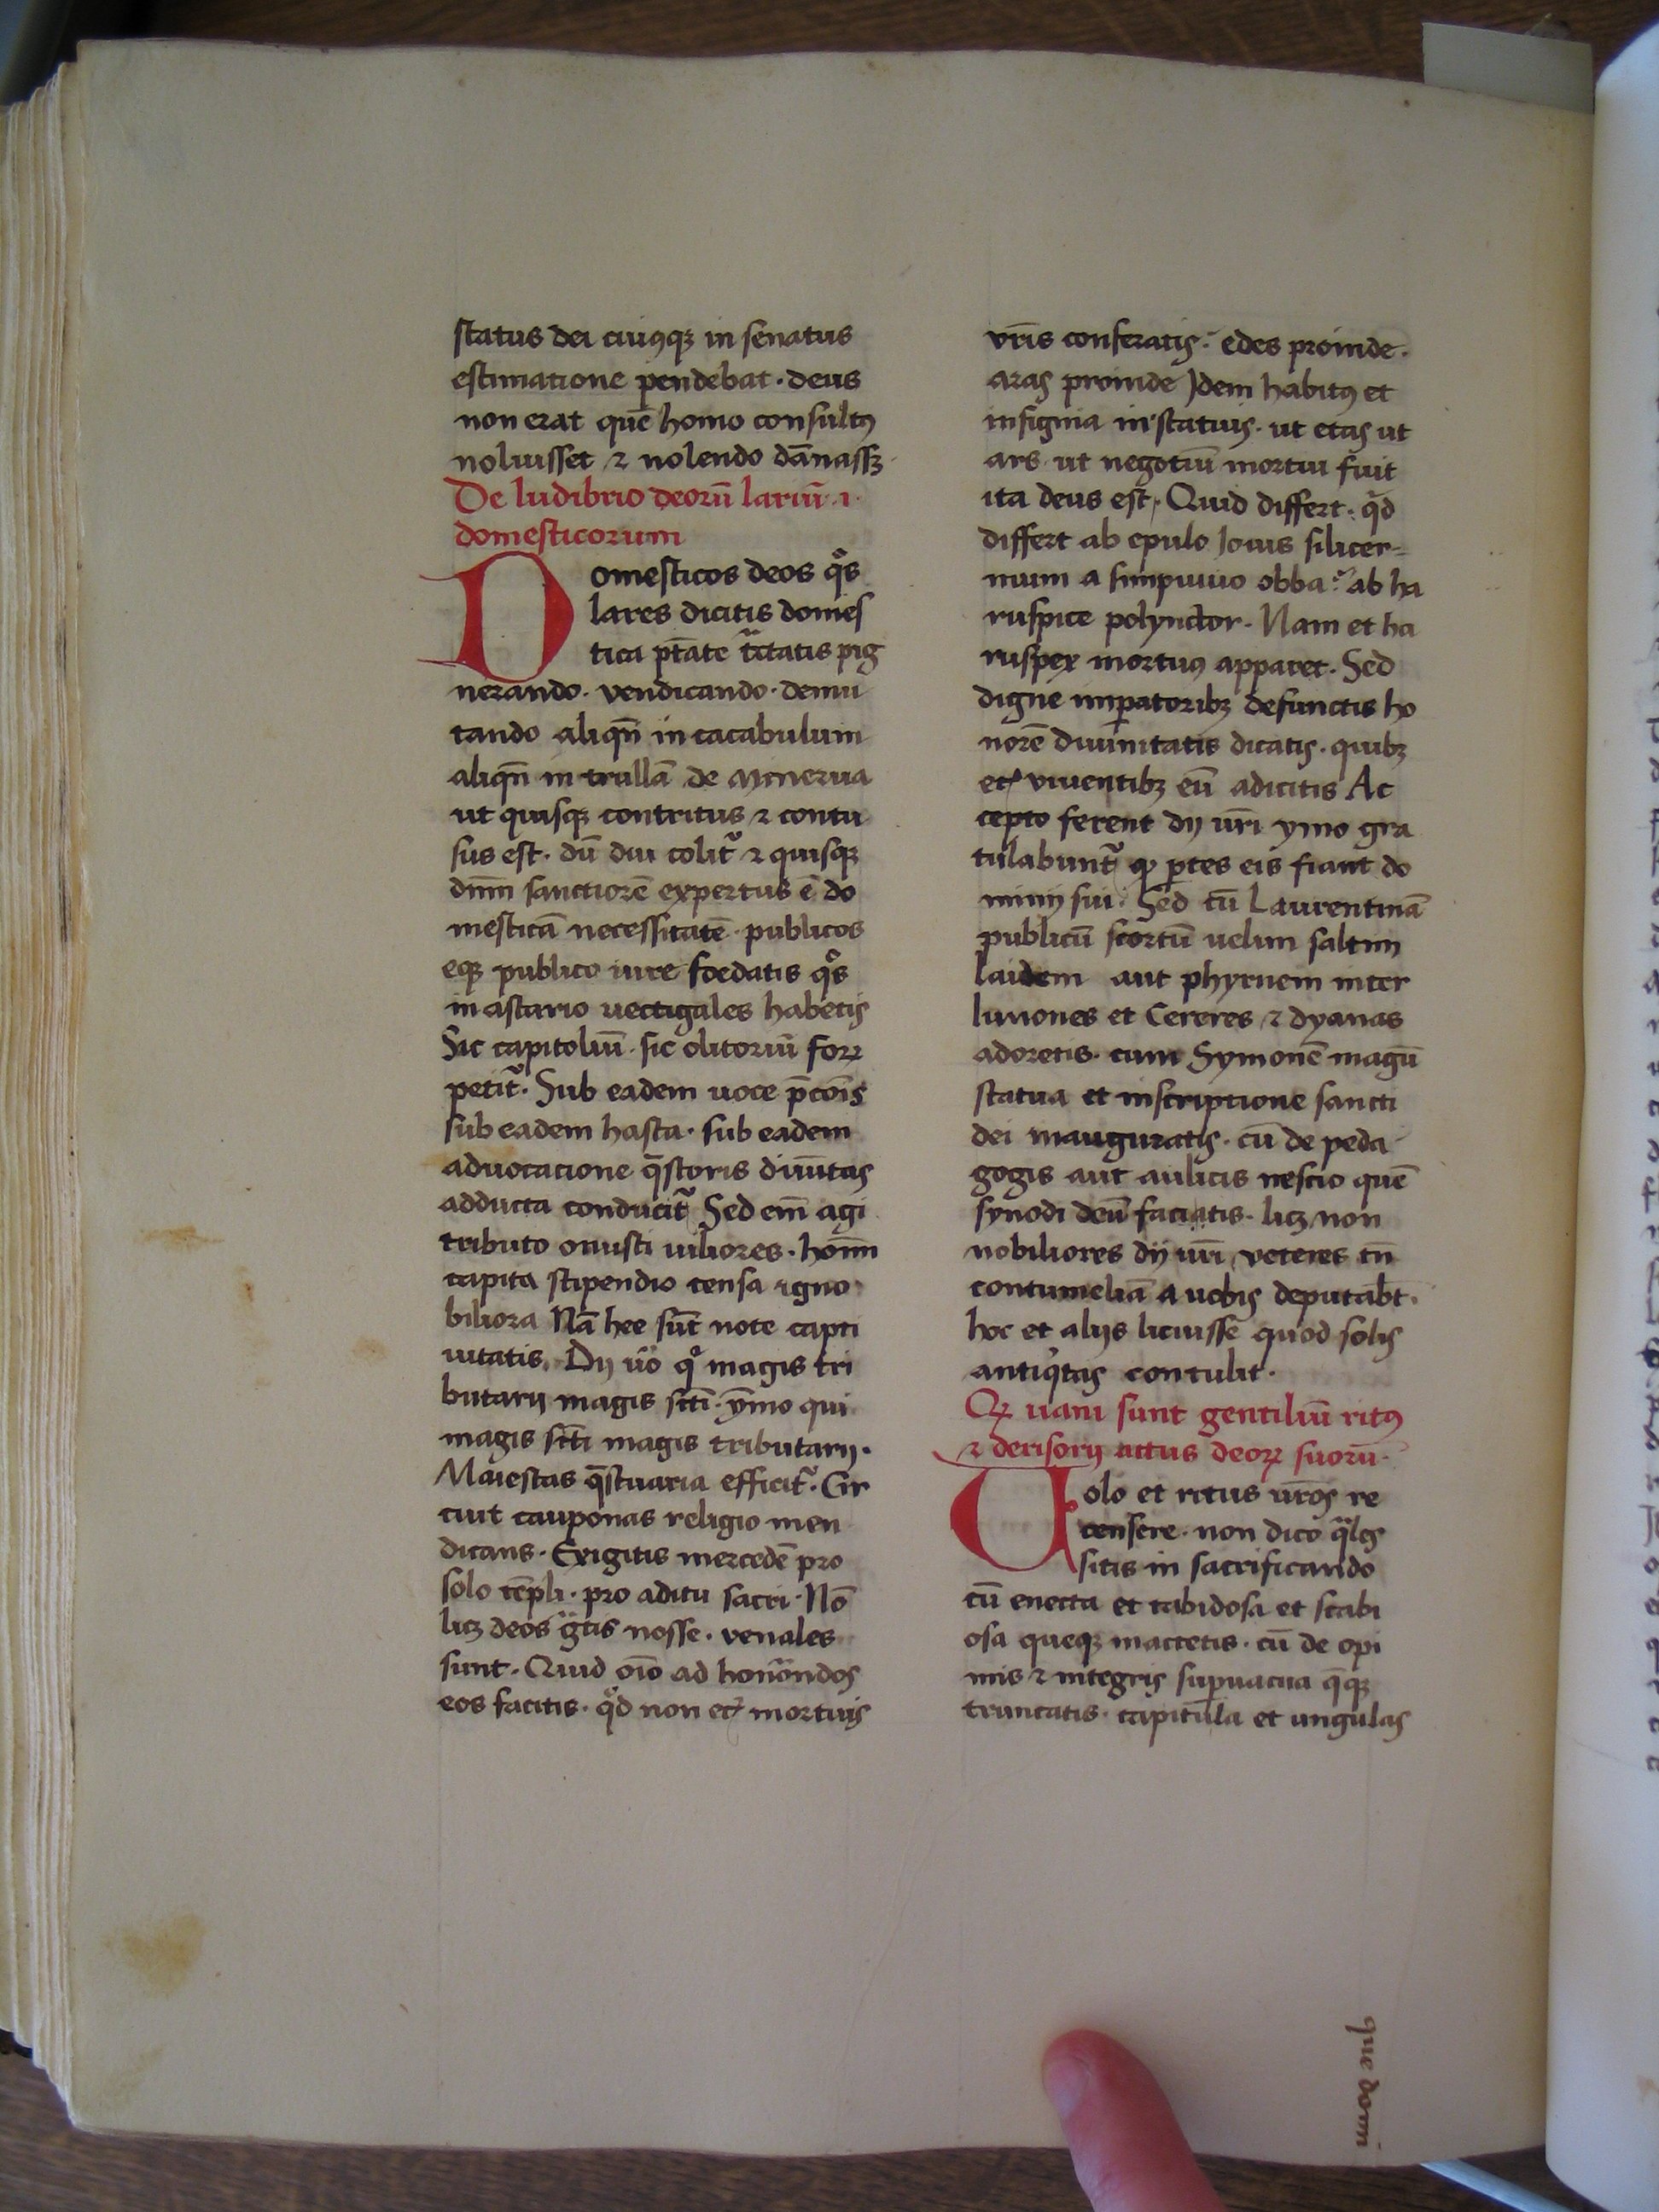 status dei cuiusqꝫ in senatus
estimatione pendebat · deus
non erat quē homo consultꝰ
noluisset ⁊ nolendo dānassꝫ
De ludibrio deorū lariū ·i·
domesticorum
Domesticos deos qͦs
lares dicitis domes
tica ptāte tͣctatis pig
nerando · vendicando · demu
tando aliqn̄ in cacabulum
aliqn̄ in trullā de Minerua
ut quisqꝫ contritus ⁊ contu
sus est · dū diu colit᷑ ⁊ quisqꝫ
dnm̄ sanctiorē expertus ē do
mesticā necessitatē · publicos
eqꝫ publico iure foedatis qͦs
in astario uectigales habetis
Sic capitoliū · sic olitoriū foꝝ
petit᷑ · Sub eadem uoce p̄cōis
sub eadem hasta · sub eadem
aduocacione q̄storis diuītas
adducta conducit᷑ Sed em̄ agi
tributo onusti uiliores · hoīm
capita stipendio censa igno
biliora Nā hee sūt note capti
uitatis · Dij ūo qͦ magis tri
butarij magis scti · ymo qui
magis scti magis tributarij ·
Maiestas q̄stuaria efficit᷑ · Cir
cuit cauponas religio men
dicans · Exigitis mercedē pro
solo tēpli · pro aditu sacri · Nō
licꝫ deos gͣtis nosse · venales
sunt · Quid oīo ad honͣandos
eos facitis · qͦd non etꝭ mortuis
vr̄is conferatis · edes proinde ·
aras proinde Idem habitꝰ et
insignia in statuis · ut etas ut
ars · ut negotiū mortui fuit
ita deus est · Quid differt · qͦd
differt ab epulo Iouis silicer=
nium a simpuuio obba · ab ha
ruspice polynctor · Nam et ha
ruspex mortuꝰ apparet · Sed
digne impatoribꝫ defunctis ho
norē diuinitatis dicatis · quibꝫ
etꝭ viuentibꝫ eū adicitis Ac
cepto ferent dij ur̄i ymo gra
tulabunt᷑ ꝙ ꝑtes eis fiant do
minij sui · Sed cū Laurentinā
publicū scortū uelim saltim
laidem aut phyrnem inter
Iunones et Cereres ⁊ dyanas
adoretis · cum Symonē magū
statua et inscriptione sancti
dei inauguratis · cū de peda
gogis aut aulicis nescio quē
synodi deū faciatis · licꝫ non
nobiliores dij ur̄i veteres tn̄
contumeliā a uobis deputabt ·
hoc et alijs licuisse quod solis
antiqͥtas contulit ·
Qꝫ uani sunt gentiliū ritꝰ
⁊ derisorij actus deoꝝ suorū ·
Uolo et ritus ur̄os re
censere · non dico qͣles
sitis in sacrificando
cū enecta et tabidosa et scabi
osa queqꝫ mactetis · cū de opi
mis ⁊ integris supuacua q̄qꝫ
truncatis · capitula et ungulas
que domi